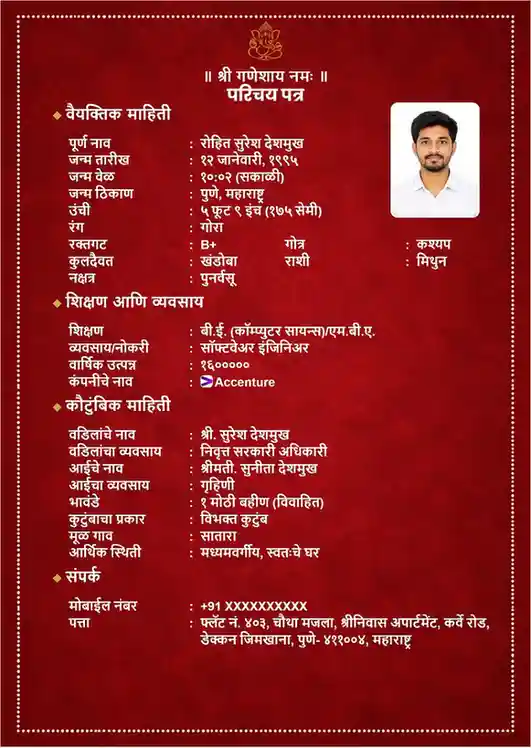 ॥ श्री गणेशाय नमः ॥
परिचय पत्र
वैयक्तिक माहिती
पूर्ण नाव : रोहित सुरेश देशमुख
जन्म तारीख : १२ जानेवारी, १९९५
जन्म वेळ : १०:०२ (सकाळी)
जन्म ठिकाण : पुणे, महाराष्ट्र
उंची : ५ फूट ९ इंच (१७५ सेमी)
रंग : गोरा
रक्तगट : B+ गोत्र : कश्यप
कुलदैवत : खंडोबा राशी : मिथुन
नक्षत्र : पुनर्वसू
शिक्षण आणि व्यवसाय
शिक्षण : बी.ई. (कॉम्प्युटर सायन्स)/एम.बी.ए.
व्यवसाय/नोकरी : सॉफ्टवेअर इंजिनिअर
वार्षिक उत्पन्न : १६०००००
कंपनीचे नाव : Accenture
कौटुंबिक माहिती
वडिलांचे नाव : श्री. सुरेश देशमुख
वडिलांचा व्यवसाय : निवृत्त सरकारी अधिकारी
आईचे नाव : श्रीमती. सुनीता देशमुख
आईचा व्यवसाय : गृहिणी
भावंडे : १ मोठी बहीण (विवाहित)
कुटुंबाचा प्रकार : विभक्त कुटुंब
मूळ गाव : सातारा
आर्थिक स्थिती : मध्यमवर्गीय, स्वतःचे घर
संपर्क
मोबाईल नंबर : +91 XXXXXXXXXX
पत्ता : फ्लॅट नं. ४०३, चौथा मजला, श्रीनिवास अपार्टमेंट, कर्वे रोड,
डेक्कन जिमखाना, पुणे- ४११००४, महाराष्ट्र